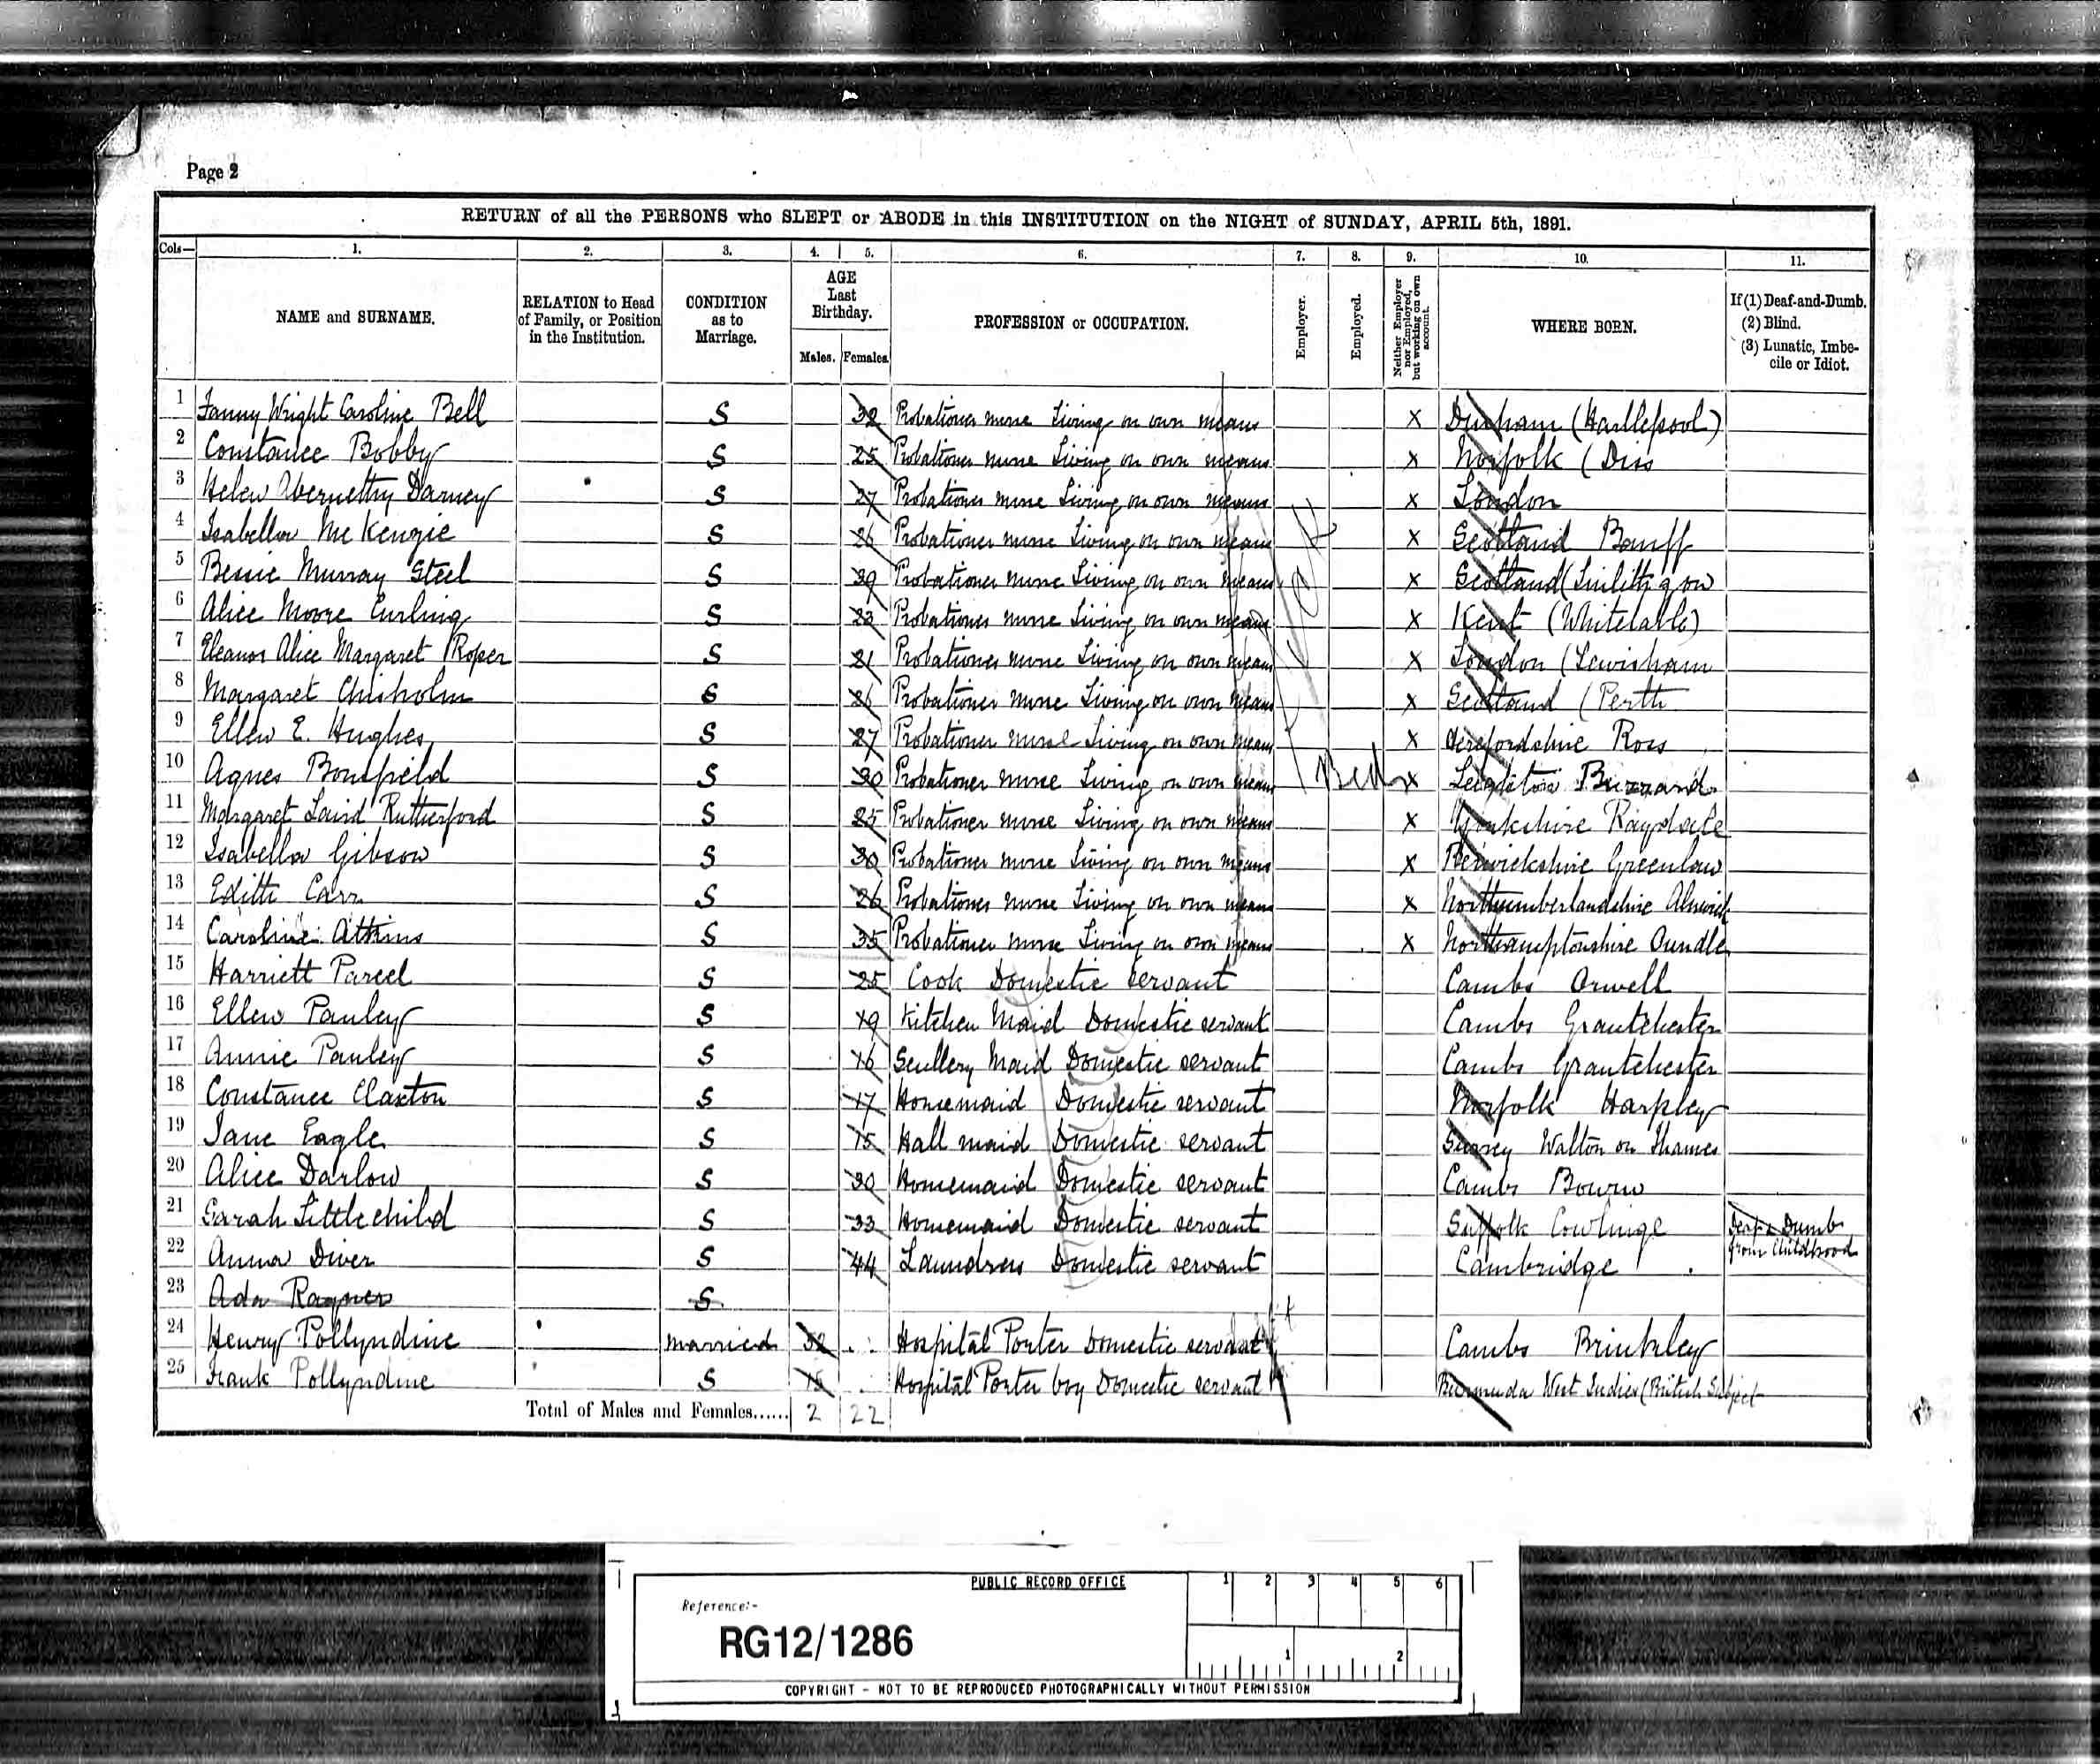 Page 2
RETURN of all the PERSONS who SLEPT or ABODE in this INSTITUTION on the NIGHT of SUNDAY, APRIL 5th, 1891.
Cols— 1. 2. 3. 4. 5. 6. 7. 8. 9. 10. 11.
NAME and SURNAME. RELATION to Head of Family, or Position in the Institution. CONDITION as to Marriage. AGE Last Birthday. Males. Females. PROFESSION or OCCUPATION. Employer. Employed. Neither Employer nor Employed, but working on own account. WHERE BORN. If (1) Deaf-and-Dumb. (2) Blind. (3) Lunatic, Imbecile or Idiot.
1 Fanny Wright Caroline Bell S 32 Probationer nurse Living on own means X Durham (Hartlepool)
2 Constance Bobby S 25 Probationer nurse Living on own means X Norfolk (Diss
3 Helen Abernethy Darney S 27 Probationer nurse Living on own means X London
4 Isabella McKenzie S 26 Probationer nurse Living on own means X Scotland Banff
5 Bessie Murray Steel S Probationer nurse Living on own means X Scotland (Linlithgow
6 Alice Moore Curling S 23 Probationer nurse Living on own means X Kent (Whitstable)
7 Eleanor Alice Margaret Roper S 21 Probationer nurse Living on own means X London (Lewisham
8 Margaret Chisholm S 26 Probationer nurse Living on own means X Scotland (Perth
9 Ellen E. Hughes S 27 Probationer nurse Living on own means X Herefordshire Ross
10 Agnes Bonsfield S 30 Probationer nurse Living on own means Beds X Leighton Buzzard
11 Margaret Laird Rutherford S 25 Probationer nurse Living on own means X Yorkshire Raydale
12 Isabella Gibson S 30 Probationer nurse Living on own means X Berwickshire Greenlaw
13 Edith Carr S 26 Probationer nurse Living on own means X Northumberlandshire Alnwick
14 Caroline Atkins S 35 Probationer nurse Living on own means X Northamptonshire Oundle
15 Harriett Parcel S 25 Cook Domestic servant Cambs Orwell
16 Ellen Pauley S 19 Kitchen Maid Domestic servant Cambs Grantchester
17 Annie Pauley S 16 Scullery Maid Domestic servant Cambs Grantchester
18 Constance Claxton S 17 Housemaid Domestic servant Norfolk Harpley
19 Jane Eagle S 15 Hall maid Domestic servant Surrey Walton on Thames
20 Alice Darlow S 30 Housemaid Domestic servant Cambs Bourn
21 Sarah Littlechild S 33 Housemaid Domestic servant Suffolk Cowlinge Deaf & Dumb from Childhood
22 Anna Diver S 44 Laundress Domestic servant Cambridge
23 Ada Rayner S
24 Henry Pollyndine married 52 Hospital Porter Domestic servant Cambs Brinkley
25 Frank Pollyndine S 15 Hospital Porter boy Domestic servant Bermuda West Indies (British Subject
Total of Males and Females...... 2 22
PUBLIC RECORD OFFICE 1 2 3 4 5 6
Reference:-
RG12/1286
1 2
COPYRIGHT - NOT TO BE REPRODUCED PHOTOGRAPHICALLY WITHOUT PERMISSION